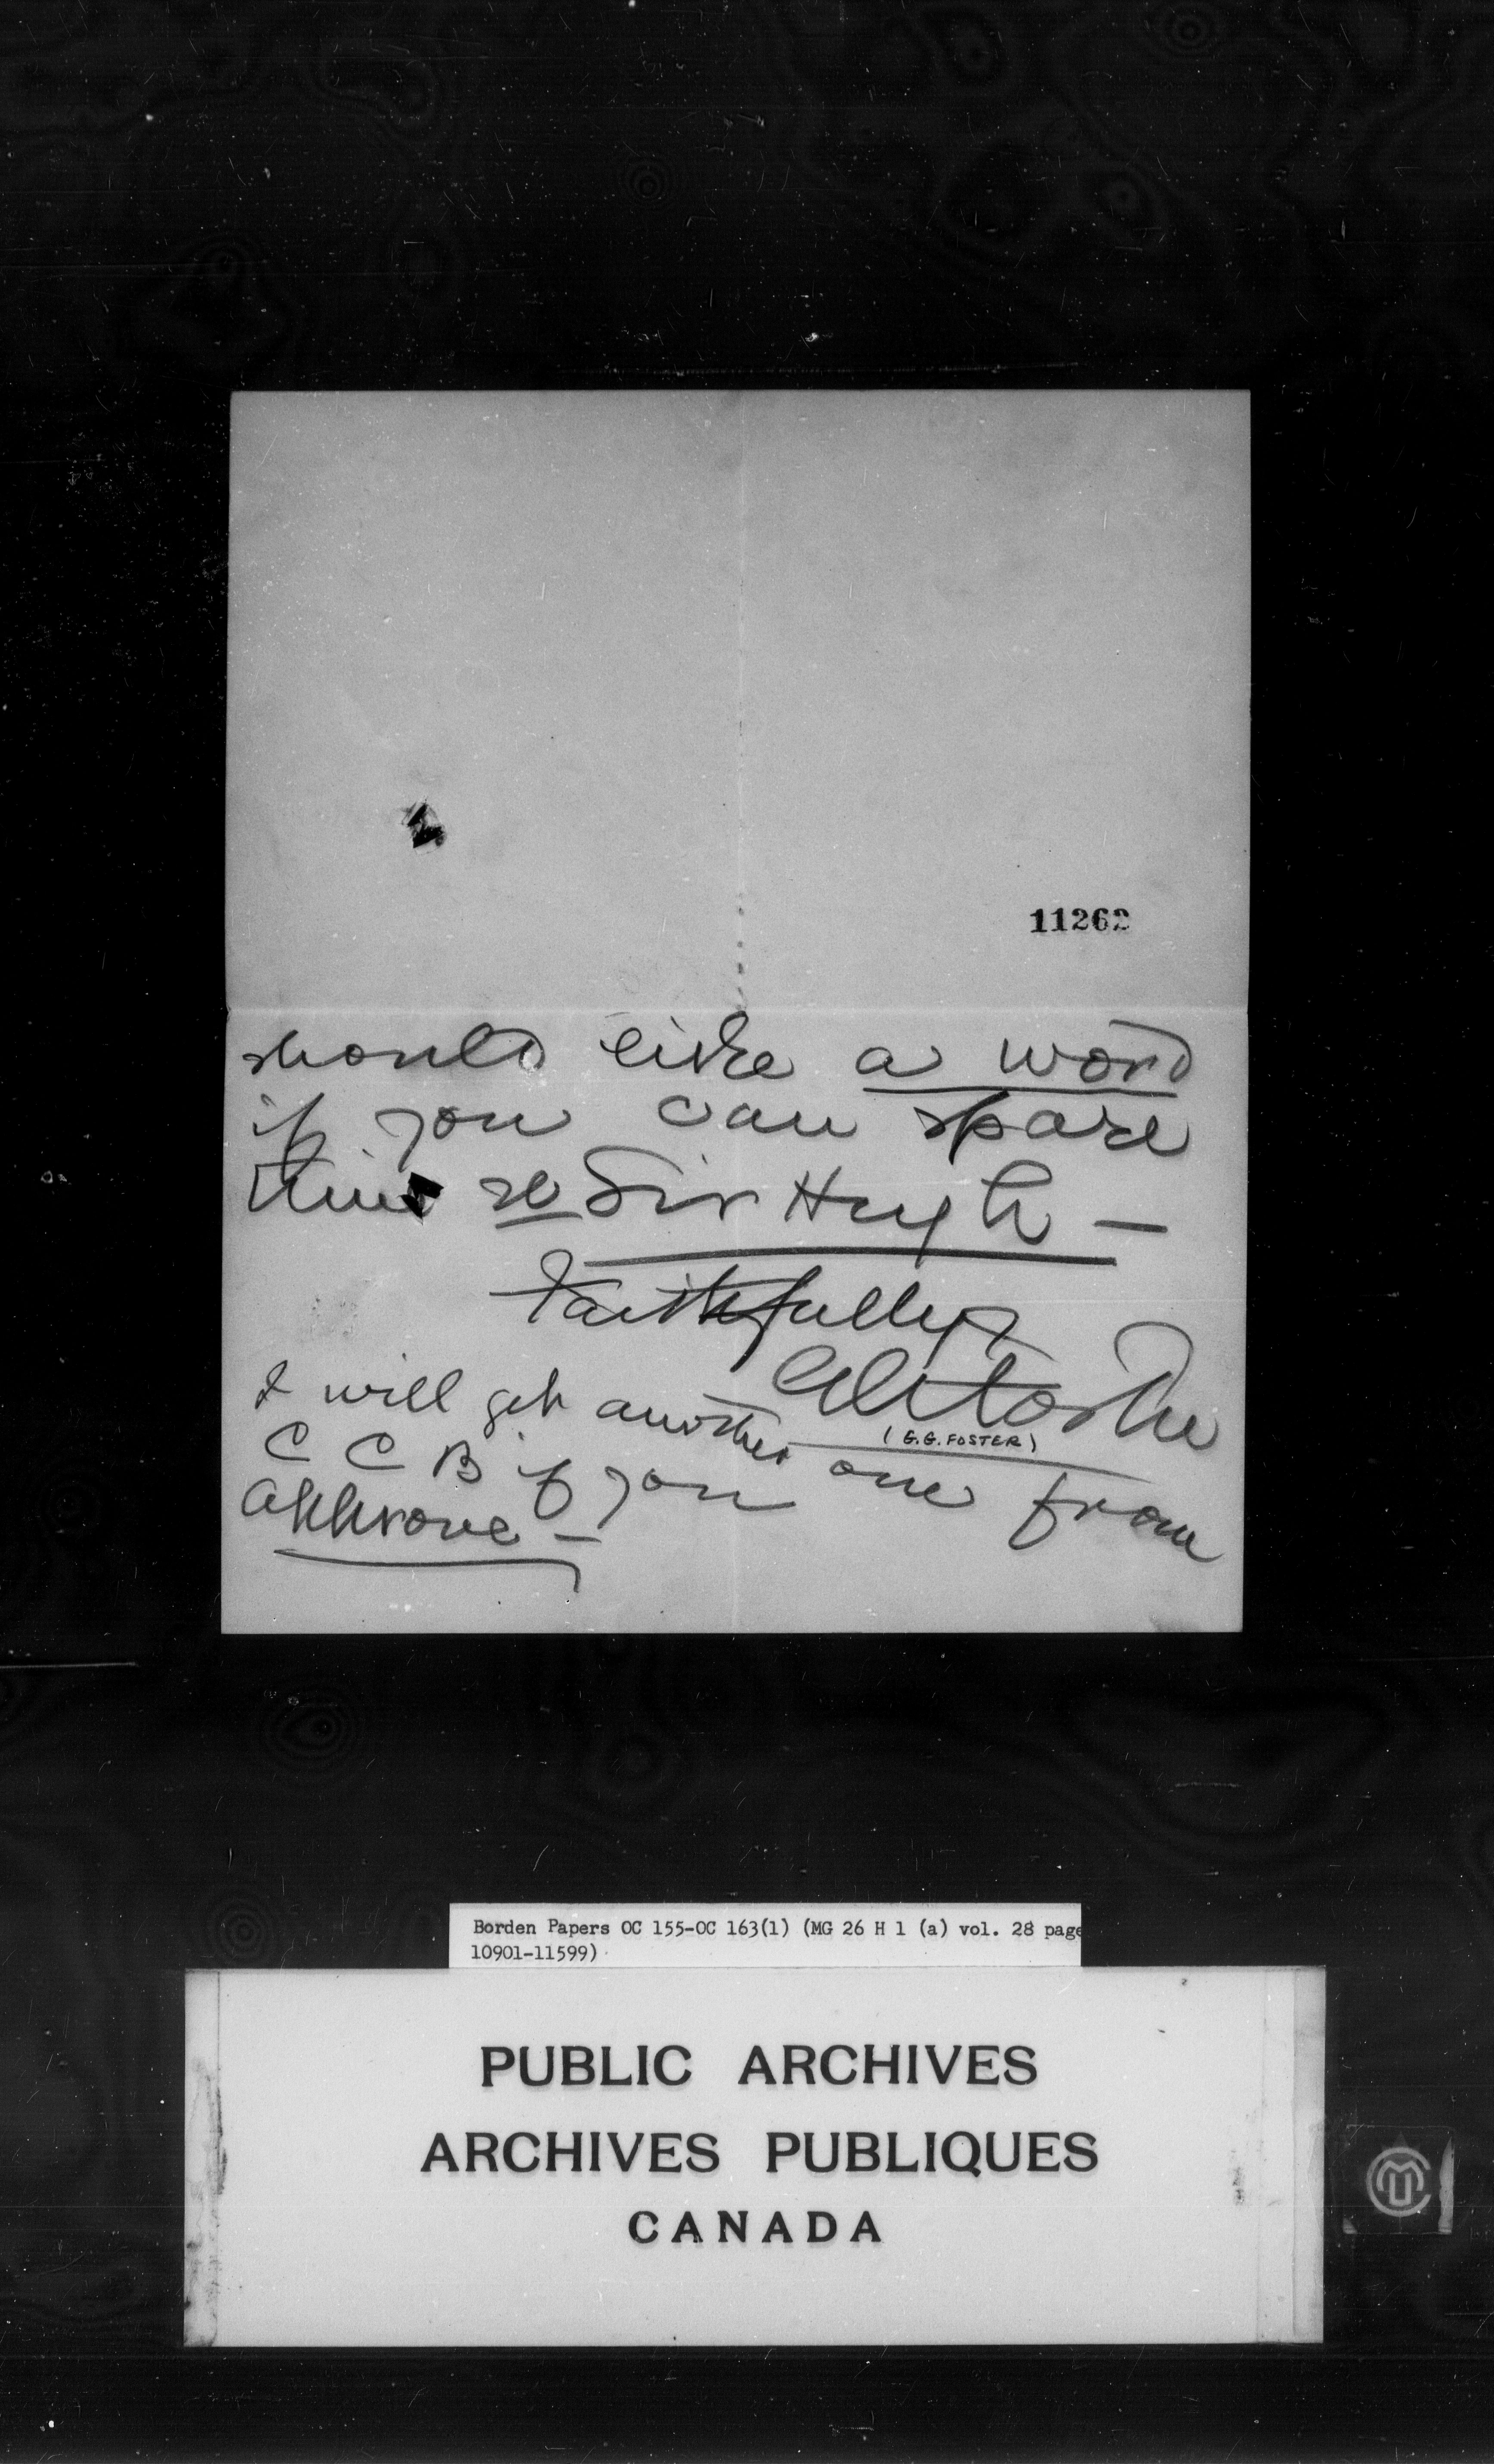 11262
should like a word
if you can spare
time re Sir Hugh —
Faithfully
GGFoster
(G.G. FOSTER)
I will get another one from
C C B if you
approve —
Borden Papers OC 155-OC 163(1) (MG 26 H 1 (a) vol. 28 page
10901-11599)
PUBLIC ARCHIVES
ARCHIVES PUBLIQUES
CANADA